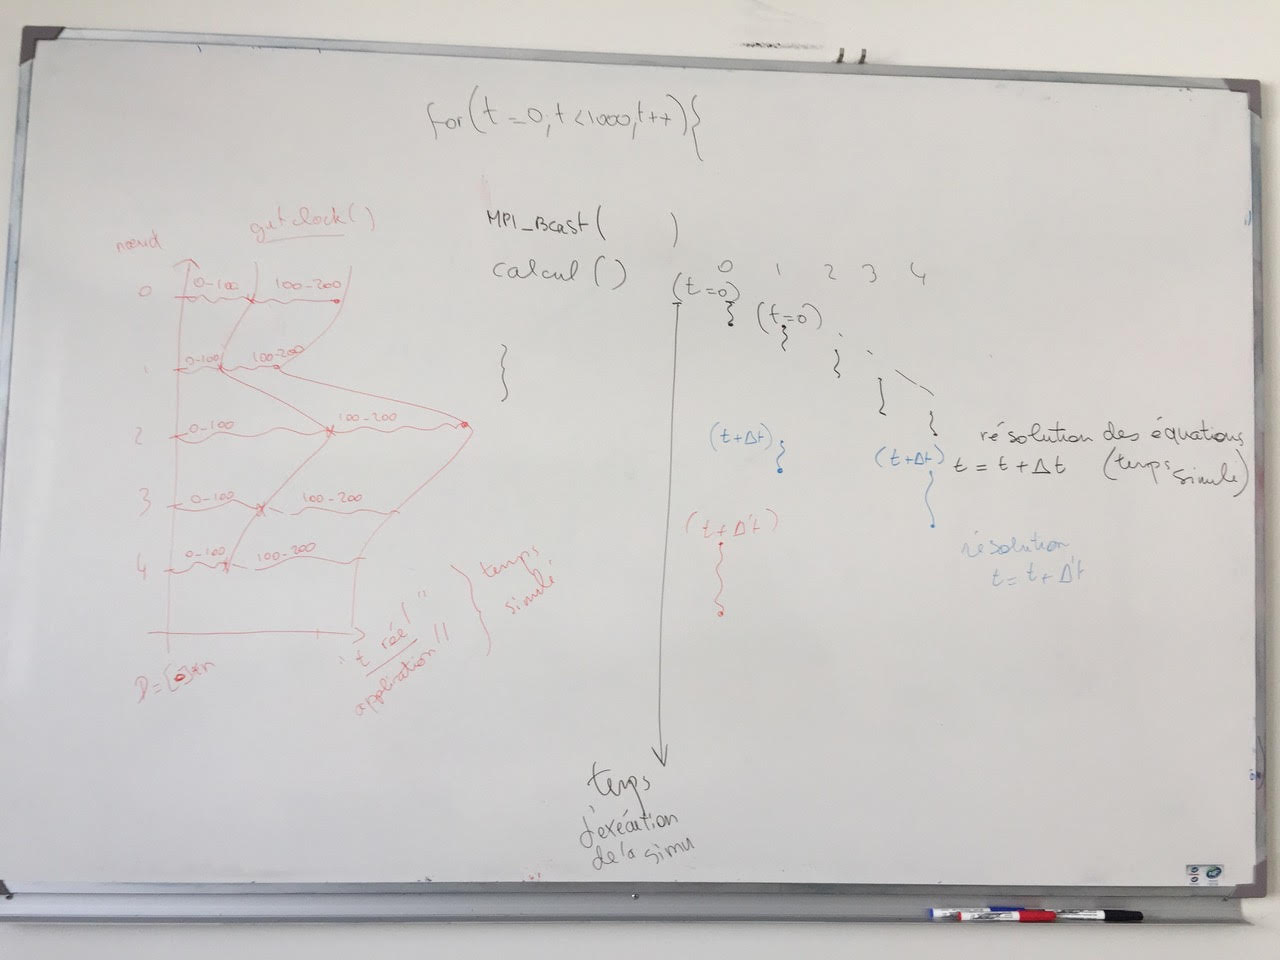 for(t=0,t<1000,t++){
MPI_Bcast( )
calcul()
}
getclock()
nœud
0 0-100 100-200
1 0-100 100-200
2 0-100 100-200
3 0-100 100-200
4 0-100 100-200
"t réel"
application"
} temps
simulé
0 1 2 3 4
(t=0)
(t=0)
(t+Δt)
(t+Δt)
résolution des équations
t = t + Δt (temps
simulé)
(t+Δ't)
résolution
t = t + Δ't
temps
d'exécution
de la simu
hp